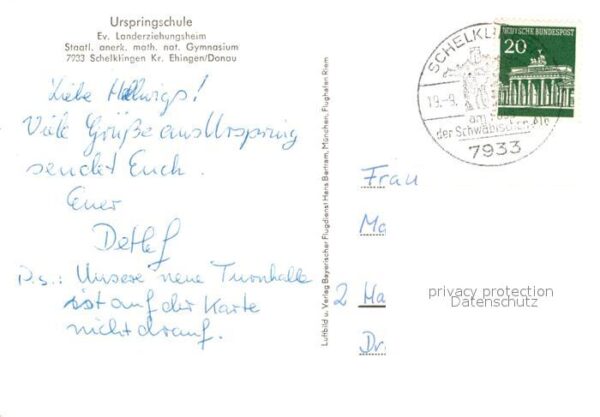 Urspringschule
Ev. Landerziehungsheim
Staatl. anerk. math. nat. Gymnasium
7933 Schelklingen Kr. Ehingen/Donau
Liebe Hellwigs!
Viele Grüße aus Urspring
sendet Euch
Euer
Detlef
P.S.: Unsere neue Turnhalle
ist auf der Karte
nicht drauf.
Luftbild u. Verlag Bayerischer Flugdienst Hans Bertram, München, Flughafen Riem
SCHELKLI
19.-9.
am
der Schwäbischen Alb
7933
DEUTSCHE BUNDESPOST
20
Frau
Ma
2 Ha
Dr.
privacy protection
Datenschutz